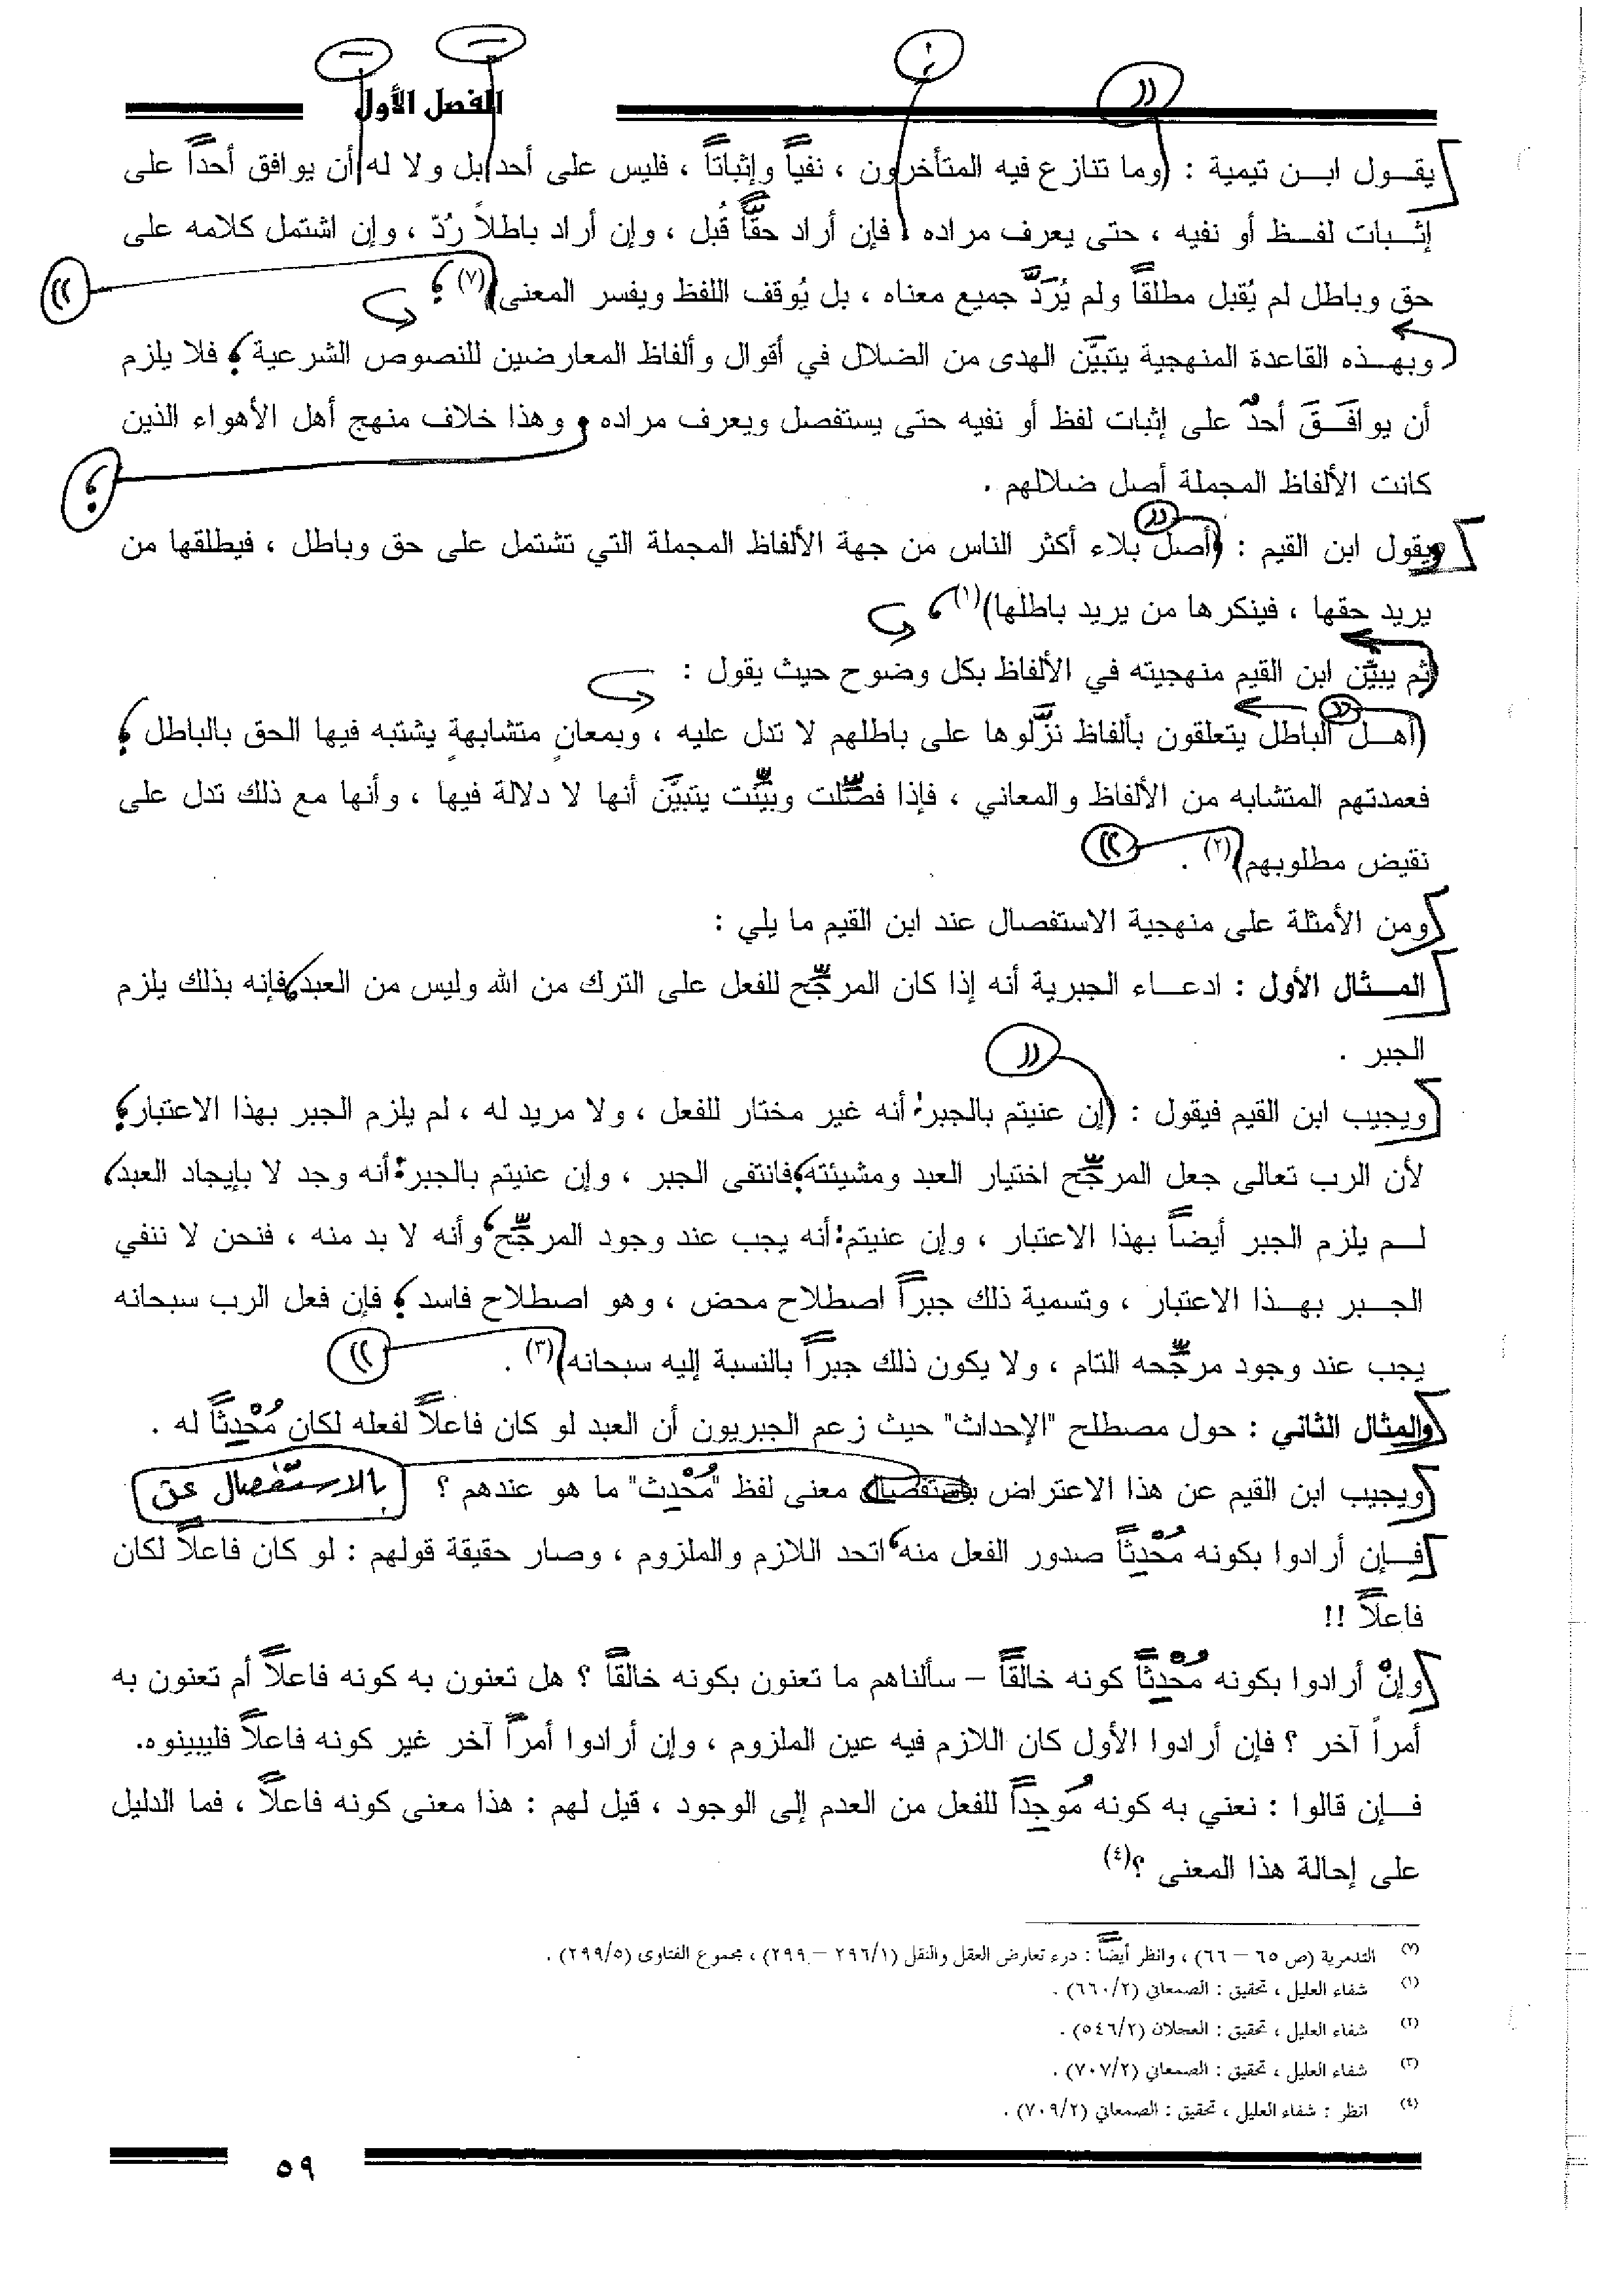 الفصل الأول
يقول ابن تيمية : (وما تنازع فيه المتأخرون ، نفياً وإثباتاً ، فليس على أحد بل ولا له أن يوافق أحداً على
إثبات لفظ أو نفيه ، حتى يعرف مراده ، فإن أراد حقًّا قُبل ، وإن أراد باطلاً رُدّ ، وإن اشتمل كلامه على
حق وباطل لم يُقبل مطلقاً ولم يُرَدَّ جميع معناه ، بل يُوقف اللفظ ويفسر المعنى)(٧) ؛
وبهذه القاعدة المنهجية يتبيَّن الهدى من الضلال في أقوال وألفاظ المعارضين للنصوص الشرعية ؛ فلا يلزم
أن يوافَقَ أحدٌ على إثبات لفظ أو نفيه حتى يستفصل ويعرف مراده ؛ وهذا خلاف منهج أهل الأهواء الذين
كانت الألفاظ المجملة أصل ضلالهم .
ويقول ابن القيم : (أصل بلاء أكثر الناس من جهة الألفاظ المجملة التي تشتمل على حق وباطل ، فيطلقها من
يريد حقها ، فينكرها من يريد باطلها)(١) ،
ثم يبيِّن ابن القيم منهجيته في الألفاظ بكل وضوح حيث يقول :
(أهل الباطل يتعلقون بألفاظ نزَّلوها على باطلهم لا تدل عليه ، وبمعانٍ متشابهةٍ يشتبه فيها الحق بالباطل ؛
فعمدتهم المتشابه من الألفاظ والمعاني ، فإذا فصِّلت وبيِّنت يتبيَّن أنها لا دلالة فيها ، وأنها مع ذلك تدل على
نقيض مطلوبهم)(٢) .
ومن الأمثلة على منهجية الاستفصال عند ابن القيم ما يلي :
المثال الأول : ادعاء الجبرية أنه إذا كان المرجِّح للفعل على الترك من الله وليس من العبد، فإنه بذلك يلزم
الجبر .
ويجيب ابن القيم فيقول : (إن عنيتم بالجبر: أنه غير مختار للفعل ، ولا مريد له ، لم يلزم الجبر بهذا الاعتبار؛
لأن الرب تعالى جعل المرجِّح اختيار العبد ومشيئته؛ فانتفى الجبر ، وإن عنيتم بالجبر: أنه وجد لا بإيجاد العبد،
لم يلزم الجبر أيضاً بهذا الاعتبار ، وإن عنيتم: أنه يجب عند وجود المرجِّح، وأنه لا بد منه ، فنحن لا ننفي
الجبر بهذا الاعتبار ، وتسمية ذلك جبراً اصطلاح محض ، وهو اصطلاح فاسد؛ فإن فعل الرب سبحانه
يجب عند وجود مرجِّحه التام ، ولا يكون ذلك جبراً بالنسبة إليه سبحانه)(٣) .
والمثال الثاني : حول مصطلح "الإحداث" حيث زعم الجبريون أن العبد لو كان فاعلاً لفعله لكان مُحْدِثًا له .
ويجيب ابن القيم عن هذا الاعتراض باستفصال معنى لفظ "مُحْدِث" ما هو عندهم ؟ بالاستفصال عن
فإن أرادوا بكونه مُحْدِثاً صدور الفعل منه، اتحد اللازم والملزوم ، وصار حقيقة قولهم : لو كان فاعلاً لكان
فاعلاً !!
وإنْ أرادوا بكونه مُحْدِثاً كونه خالقاً – سألناهم ما تعنون بكونه خالقاً ؟ هل تعنون به كونه فاعلاً أم تعنون به
أمراً آخر ؟ فإن أرادوا الأول كان اللازم فيه عين الملزوم ، وإن أرادوا أمراً آخر غير كونه فاعلاً فليبينوه.
فإن قالوا : نعني به كونه مُوجِداً للفعل من العدم إلى الوجود ، قيل لهم : هذا معنى كونه فاعلاً ، فما الدليل
على إحالة هذا المعنى ؟(٤)
(٧) التدمرية (ص ٦٥ – ٦٦) ، وانظر أيضاً : درء تعارض العقل والنقل (٢٩٦/١ – ٢٩٩) ، مجموع الفتاوى (٢٩٩/٥) .
(١) شفاء العليل ، تحقيق : الصمعاني (٦٦٠/٢) .
(٢) شفاء العليل ، تحقيق : العجلان (٥٤٦/٢) .
(٣) شفاء العليل ، تحقيق : الصمعاني (٧٠٧/٢) .
(٤) انظر : شفاء العليل ، تحقيق : الصمعاني (٧٠٩/٢) .
٥٩